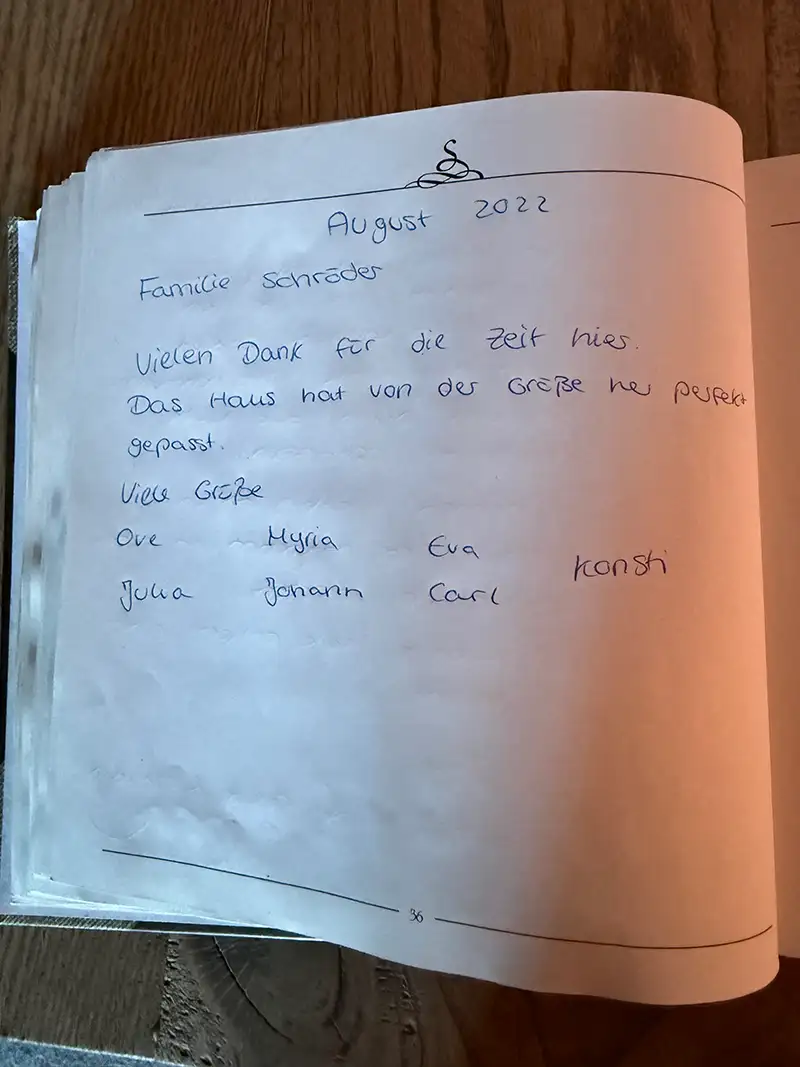 S
August 2022
Familie Schröder
Vielen Dank für die Zeit hier.
Das Haus hat von der Größe her perfekt
gepasst.
Viele Grüße
Ove Myria Eva Konsti
Julia Johann Carl
36